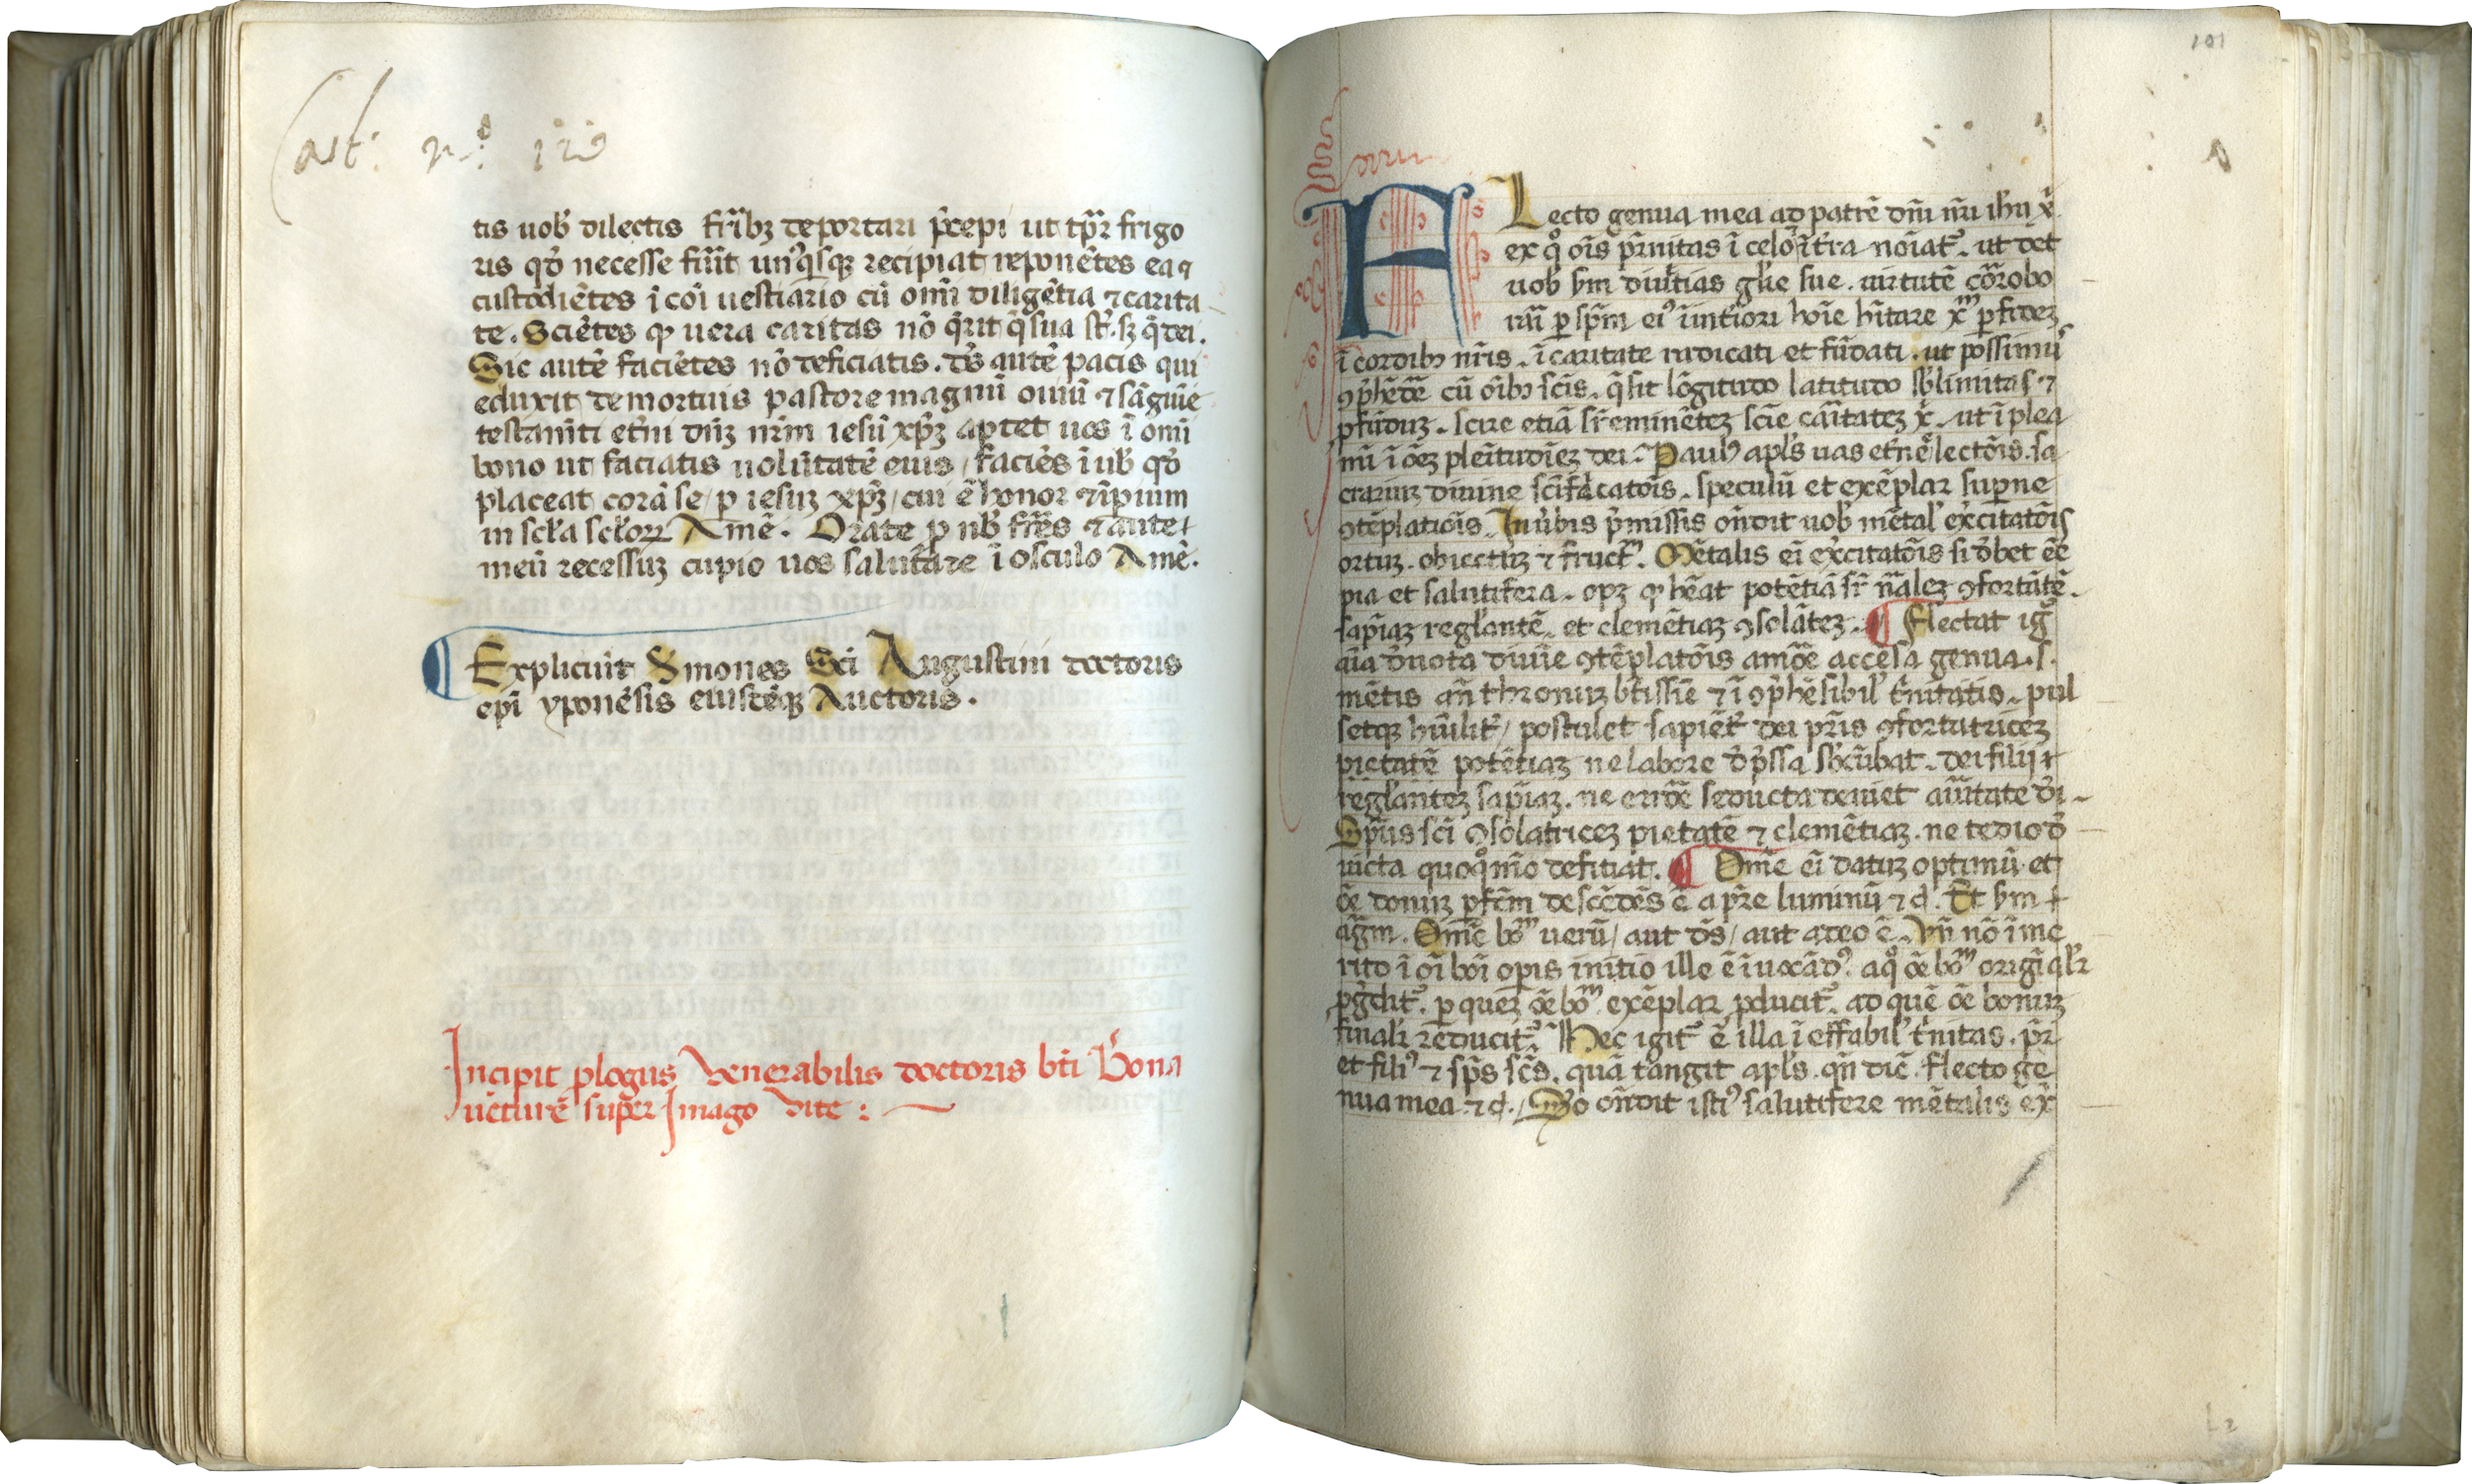 Cart: nº: 120
tis uob̕ dilectis fr̄ibꝫ deportari p̄cepi ut tp̄r frigo
ris qd̕ necesse fūit un'q̄sqꝫ recipiat reponētes ea ꝯ
custodiētes ī cōi uestiario cū om̄i diligētia ⁊ carita
te. Sciētes ꝙ uera caritas nō q̄rit q̄ sua st̄. sꝫ q̄ dei.
Sic autē faciētes nō deficiatis. dꝰs autē pacis qui
eduxit de mortuis pastore magnū ouiū ⁊ sāguīe
testamēti et̄ni dn̄ꝫ nr̄m iesū xp̄ꝫ aptet uos ī omī
bono ut faciatis uolūtatē euis / faciēs ī uob̕ qd̕
placeat corā se / p iesuꝫ xp̄ꝫ / cui ē honor ⁊ īpium
in scl̄a scl̄oꝝ Amē. Orate p nob̕ fr̄es ⁊ ante
meū recessuꝫ cupio uos salutare ī osculo Amē.
¶ Expliciūt S̕mones Sc̄i Augustini doctoris
epī yponēsis eiusdēqꝫ Auctoris.
Incipit ꝓlogus Venerabilis doctoris bt̄i Bona
uēturē super Imago vite :
101
A
FLecto genua mea ad patrē dn̄i nr̄i ihū x̄
ex qͦ oīs pr̄nitas ī celo ⁊ ī t̄ra noīat᷑. ut det
uob̕ s̄m diuitias gl̄ie sue. uirtutē corrobo
rari ꝑ sp̄m eiꝰ ī int̄iori hoīe h̄itare xͫ ꝑ fideꝫ
ī cordibꝫ nr̄is. ī caritate radicati et fūdati. ut possimꝰ
ꝯp̄hēdē cū oībꝫ sc̄is. q̄ sit lōgitudo latitudo sb̕limitas ⁊
ꝓfūduꝫ. scire etiā sr̄eminēteꝫ scīe cāitateꝫ x̄. ut ī plea
mī ī oēꝫ plenitudīeꝫ dei. Paulꝰ apl̄s uas et̄ne lectōis. sa
crariuꝫ diuine sc̄ificatōis. speculū et exēplar suꝑne
ꝯtēplatiōis. In ūbis p̄missis on̄dit uob̕ mētal̕ exc̄itatōis
ortuꝫ. obiectuꝫ ⁊ fructͫ. Mētalis ei exc̄itatōis si dꝫbet eē
pia et salutifera. opꝫ ꝙ hēat potētiā sr̄ n̄aleꝫ ꝯfortātē.
sapīaꝫ regl̄antē. et clemētiaꝫ ꝯsolāteꝫ. ¶ Flectat igͬ
aīa deuota diuīe ꝯtēplatōis amōe accēsa genua. s.
mētis an̄ thronuꝫ bt̄issīe ⁊ īcꝯp̄hēsibil̕ t̄nitatis. pul
setqꝫ hūilit̕ / postulet sapiēt̕ dei pr̄is ꝯfortatriceꝫ
pietatē potētiaꝫ ne labore dep̄ssa sb̕cūbat. dei filij ⁊
regl̄anteꝫ sapīaꝫ. ne errōe seducta deuiet a ūitate dei.
Sp̄us sc̄i ꝯsolatriceꝫ pietatē ⁊ clemētiaꝫ. ne tedio de
uicta quoqͦ mō defitiat. ¶ Omē ei datuꝫ optimū et
oē donuꝫ ꝑfc̄m descēdēs ē a pr̄e luminū ⁊ cͥ. Et s̄m
ag̅m. Omē boͫ uerū / aut dꝰs / aut a deo ē. Vn̄ nō īme
rito ī oī boī opis initio ille ē īuocādꝰ. a qͦ oē boͫ origīal̕r
ꝓgdit᷑. ꝑ queꝫ oē boͫ exēplar ꝓducit᷑. ad quē oē bonuꝫ
final̕r reducit᷑. Hec igit᷑ ē illa ī effabil̕ t̄nitas. pr̄
et filiꝰ ⁊ sp̄s sc̄s. quā tangit apl̄s. qn̄ dic̄. flecto ge
nua mea ⁊ cͥ. Sco on̄dit istiꝰ salutifere mētalis ex̄
L 2